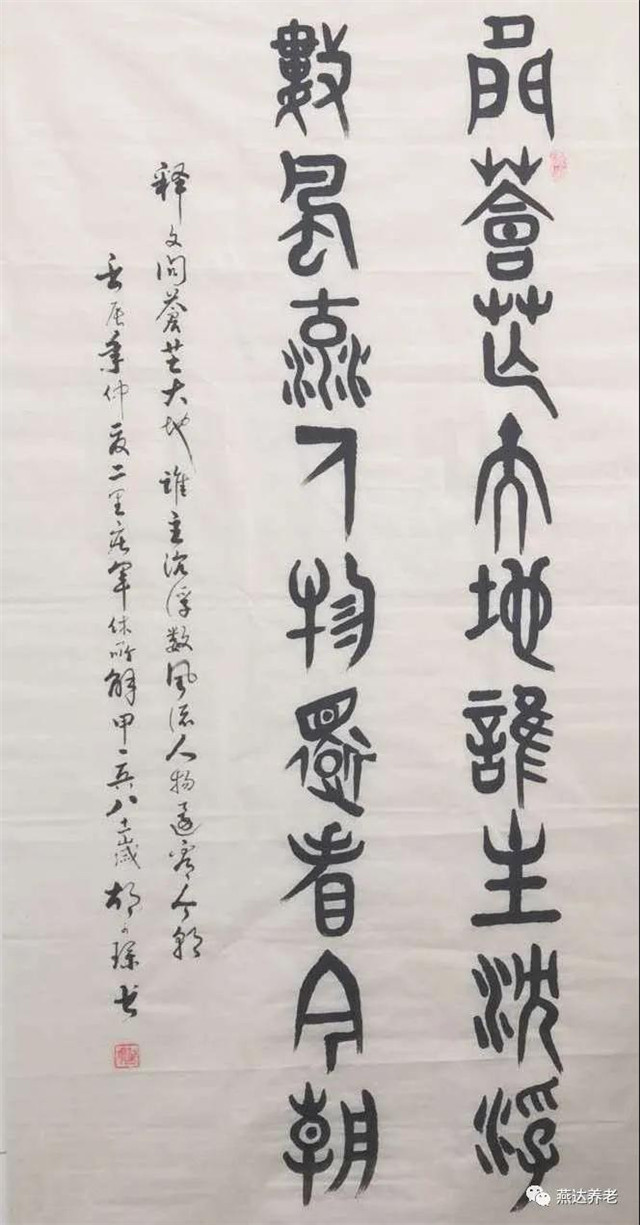 問蒼茫大地誰主沈浮
數風流人物還看今朝
释文问蒼茫大地谁主沉浮数风流人物还看今朝
壬辰年仲夏二里庄军休所解甲一兵八十岁书
燕达养老